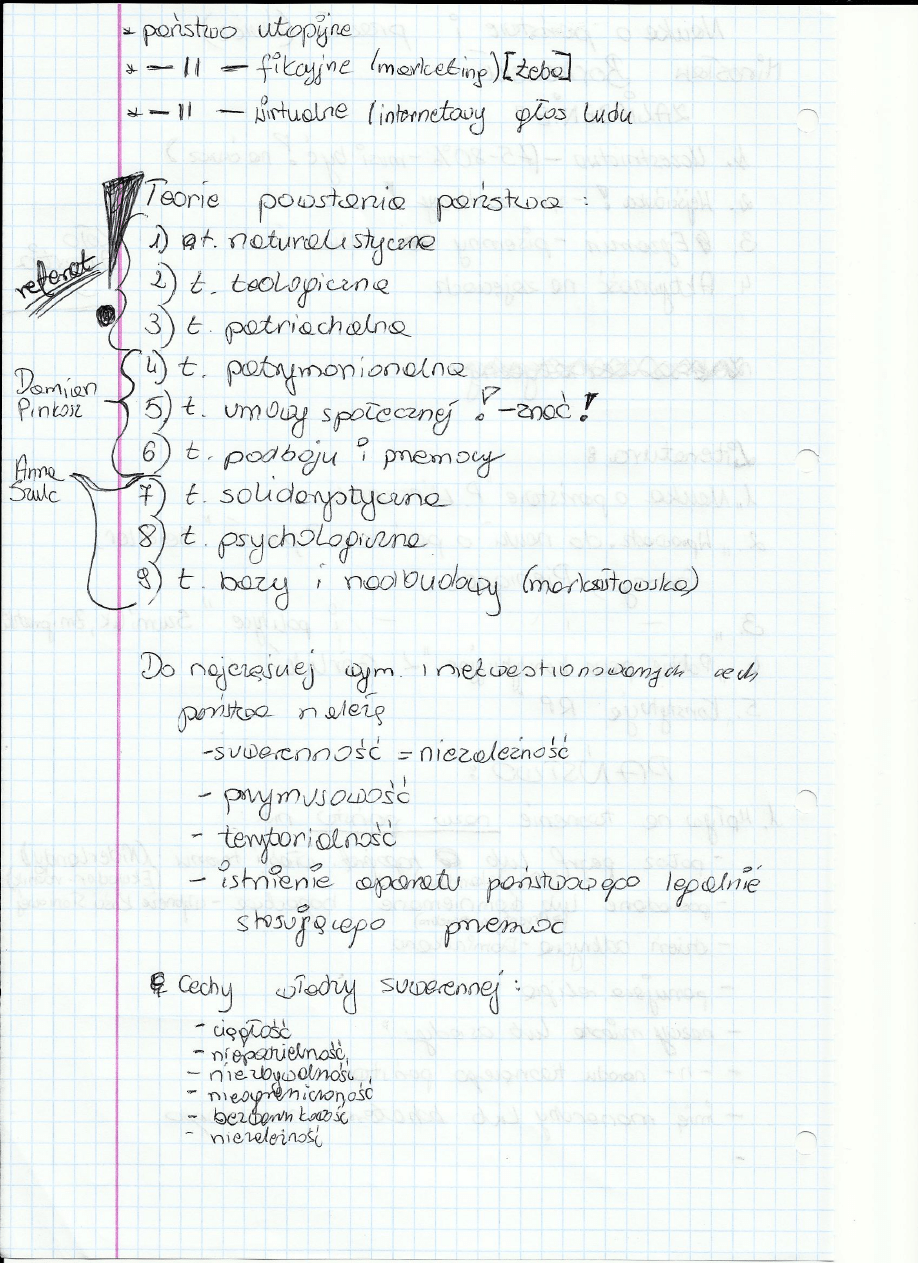 * państwo utopijne
* — 〃 — fikcyjne (marketing) [żeba]
* — 〃 — wirtualne (internetowy głos ludu
Teorie powstania państwa :
1) t. naturalistyczna
referat
2) t. teologiczna
3) t. patriachalna
4) t. patrymonionalna
Damian
Pinkosz
5) t. umowy społecznej ! - znać !
6) t. podboju i przemocy
Anna
Szulc
7) t. solidarystyczna
8) t. psychologiczna
9) t. bazy i nadbudowy (marksistowska)
Do najczęsciej wym. i niekwestionowanych cech
państwa należą
- suwerenność = niezależność
- przymusowość
- terytorialność
- istnienie aparatu państwowego legalnie
stosującego przemoc
Cechy władzy suwerennej :
- ciągłość
- niepodzielność
- niezbywalność
- nieograniczoność
- bezwarunkowość
- niezależność